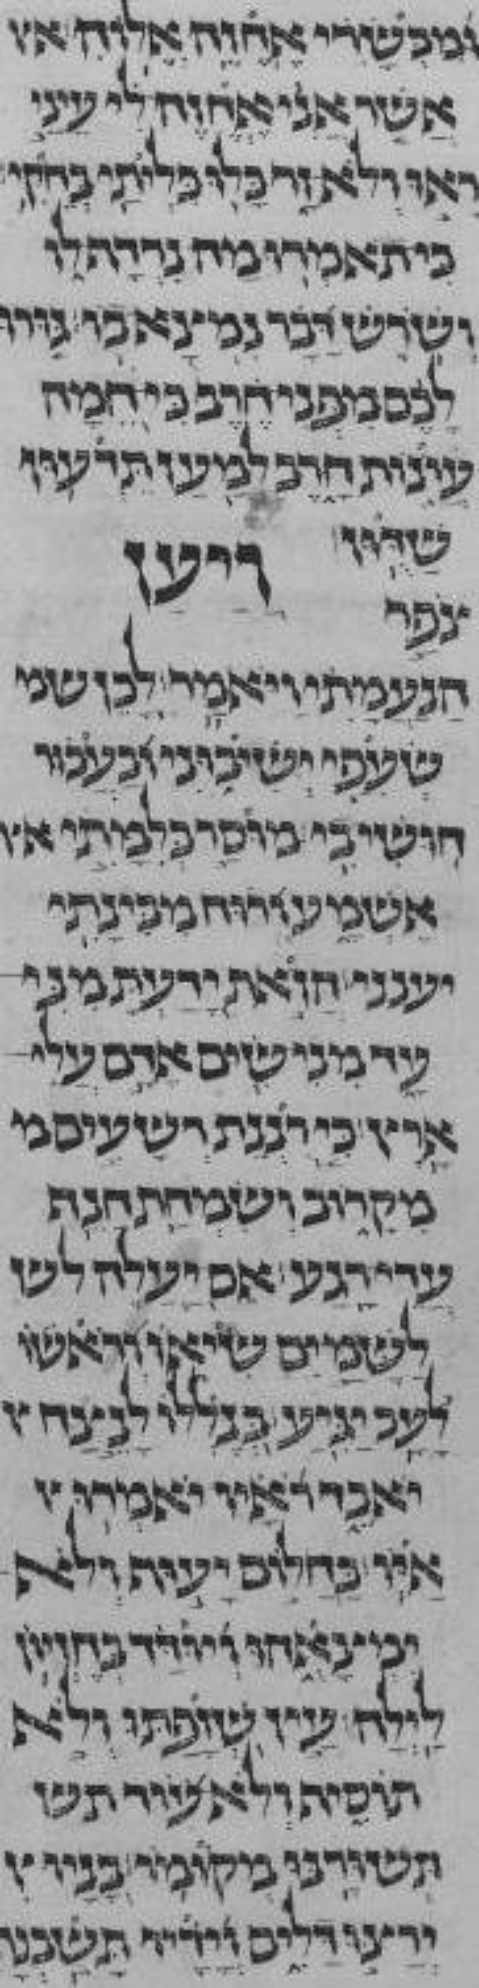 ומבשרי אחזה אלוה א
אשר אני אחזה לי עיני
ראו ולא זר כלו כליתי בחקי
כי תאמרו מה נרדף לו
ושרש דבר נמצא בי גורו
לכם מפני חרב כי חמה
עונות חרב למען תדעון
שדון ויען
צפר
הנעמתי ויאמר לכן שע
שעפי ישיבוני ובעבור
חושי בי מוסר כלמתי א
אשמע ורוח מבינתי
יענני הזאת ידעת מני
עד מני שים אדם עלי
ארץ כי רננת רשעים מ
מקרוב ושמחת חנף
עדי רגע אם יעלה לש
לשמים שיאו וראשו
לעב יגיע כגללו לנצח י
יאבד ראיו יאמרו
איו כחלום יעוף ולא
ימצאהו וידד כחזיון
לילה עין שזפתו ולא
תוסיף ולא עוד תש
תשורנו מקומו בניו י
ירצו דלים וידיו תשבנה